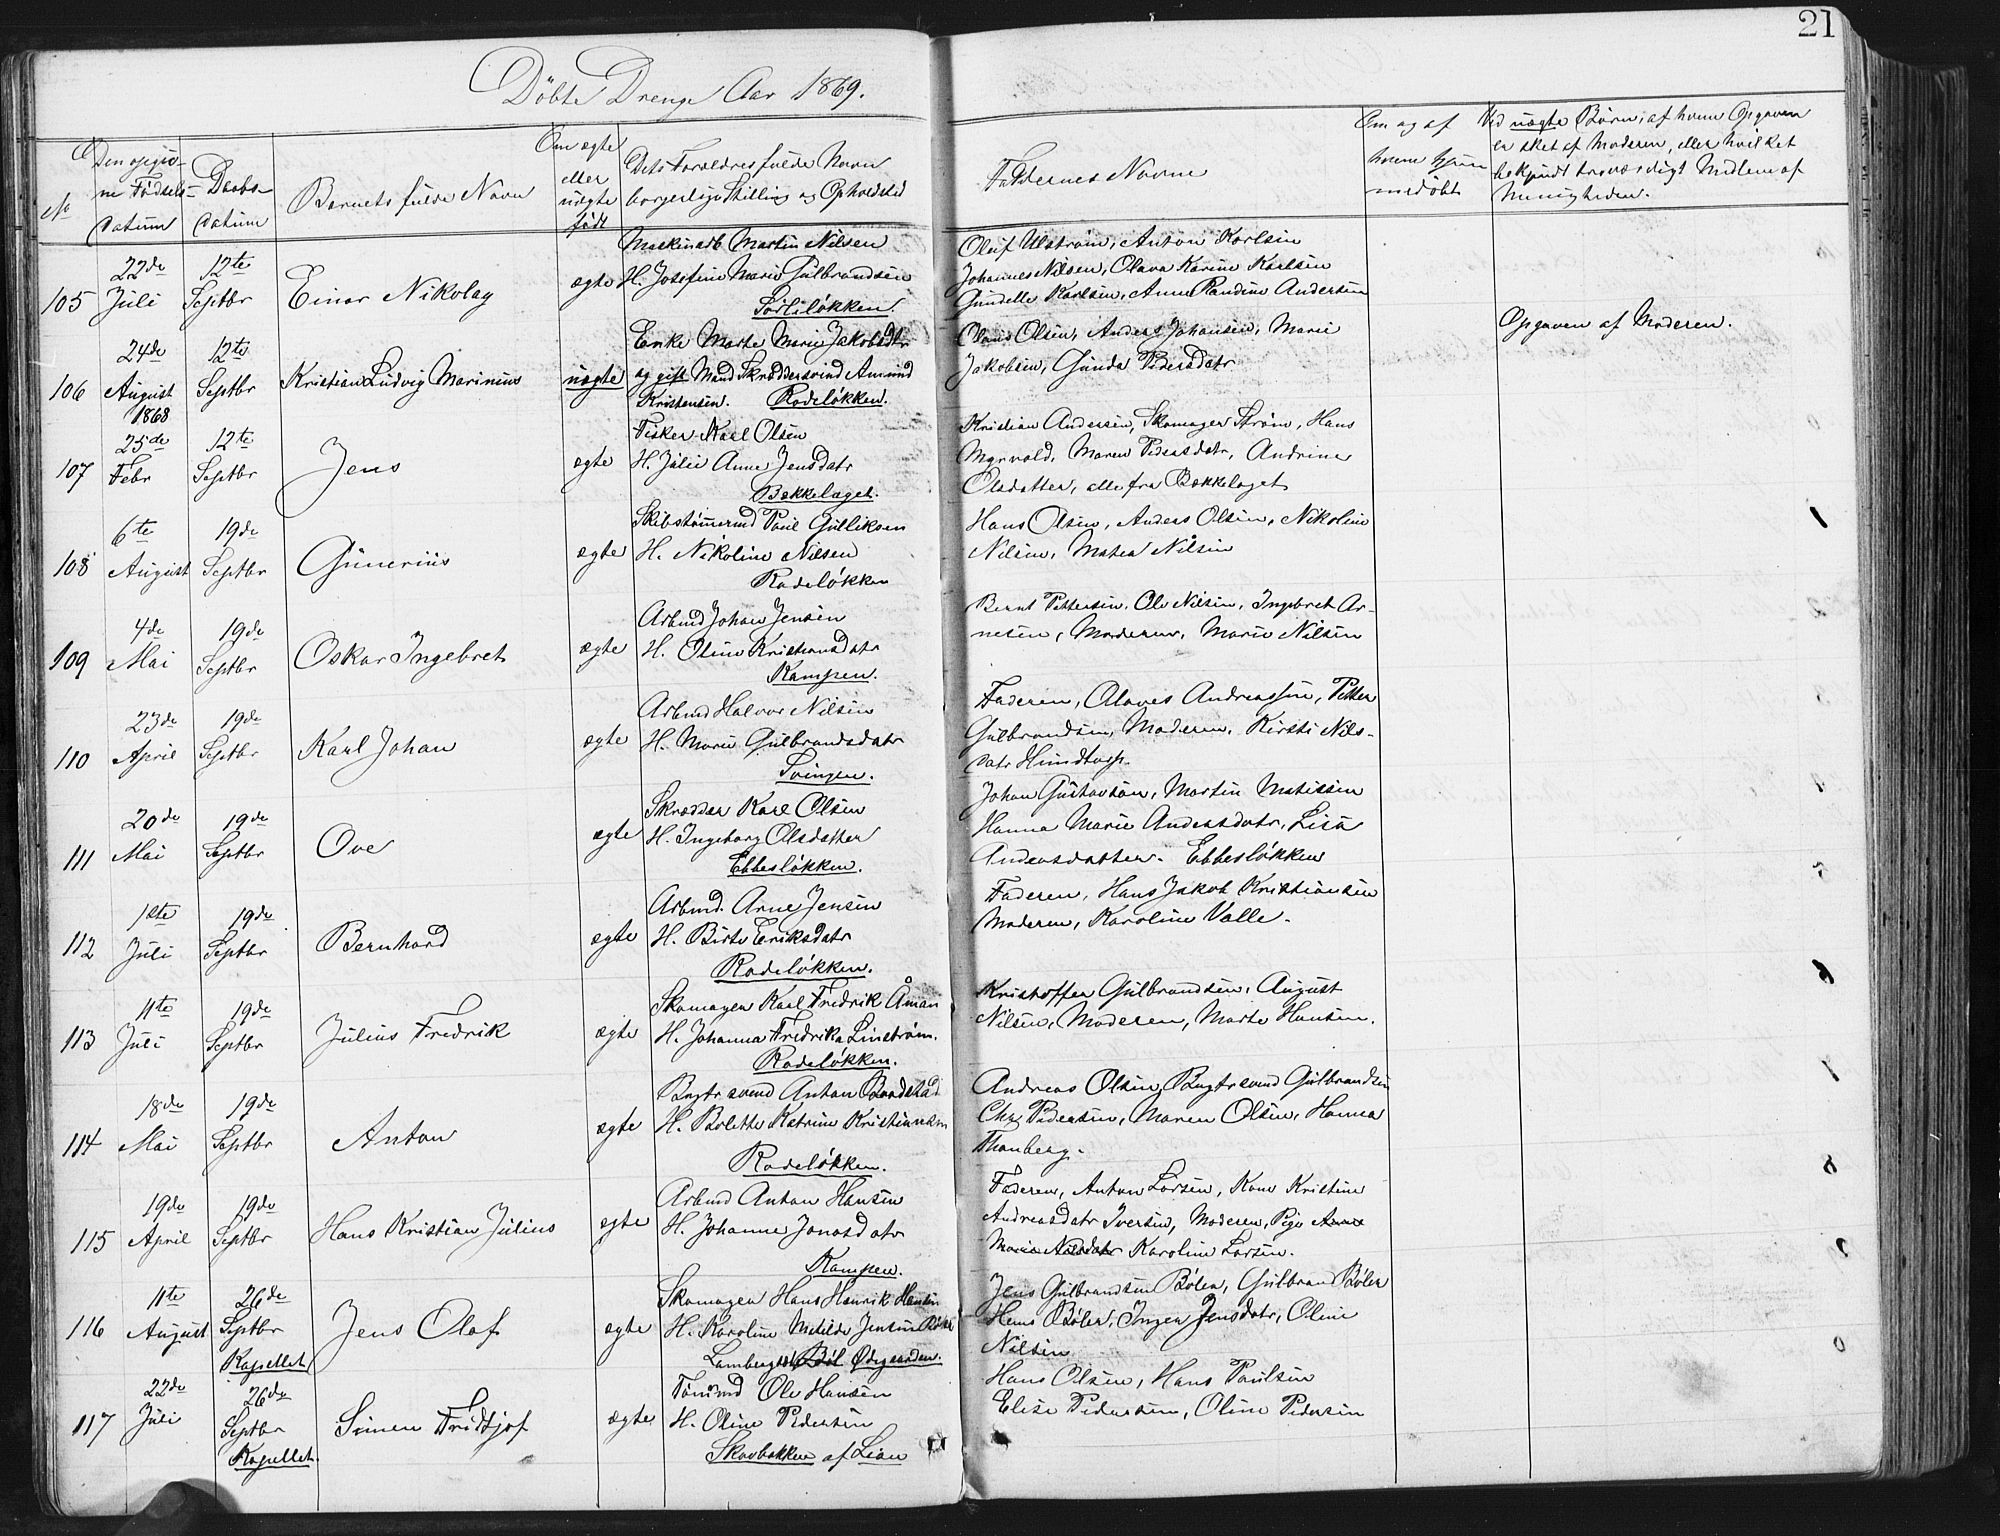 21
Döbte Drenge Aar 1869.
No
Den opgivne Fødselsdatum
Daabsdatum
Barnets fulde Navn
Om ægte eller uægte født
Dets Forældres fulde Navn borgerlige Stilling og Opholdsted
Faddernes Navne
Om og af hvem hjemmedøbt
Vid uægte Børn; af hvem Opgaven er sket af Moderen, eller hvilket bekjendt troværdigt Midlem af Menigheden.
105 22de Juli 12te Septbr Einar Nikolay ægte
Maskinarb Martin Nilsen
H. Josefine Marie Gulbrandsen
Sorliløkken.
Oluf Ulstrøm, Anton Karlsen
Johannes Nilsen, Olava Karine Karlsen
Gunelle Karlsen, Anne Randine Andersen
106 24de August 1868 12te Septbr Kristian Ludvig Marinius uægte
Enke Marte Marie Jakobsdtr
og gift Mand Skræddersvend Amund
Kristensen. Rodeløkken.
Olaus Olsen, Anders Johansen, Marie
Jakobsen, Gunda Pedersdatr
Opgaven af Moderen.
107 25de Febr 12te Septbr Jens ægte
Fisker Karl Olsen
H. Julie Anne Jensdatr
Bækkelaget.
Kristian Andersen, Skomager Strøm, Hans
Myrvold, Maren Pedersdatr, Andrine
Olsdatter, alle fra Bækkelaget
108 6te August 19de Septbr Günerius ægte
Skibstømermd Paul Gulliksen
H. Nikoline Nilsen
Rodeløkken
Hans Olsen, Anders Olsen, Nikoline
Nilsen, Matea Nilsen
109 4de Mai 19de Septbr Oskar Ingebret ægte
Arbmd Johan Jensen
H. Oline Kristiansdatr
Kampen.
Bernt Pettersen, Ole Nilsen, Ingebret Ar-
nesen, Moderen, Marie Nilsen
110 23de April 19de Septbr Karl Johan ægte
Arbmd Halvor Nilsen
H. Marie Gulbrandsdatr
Svingen.
Faderen, Olaves Andreassen, Petter
Gulbrandsen, Moderen, Kirsti Nils-
datr Himdtorp.
111 20de Mai 19de Septbr Ove ægte
Skrædder Karl Olsen
H. Ingeborg Olsdatter
Ebbesløkken.
Johan Gustavson, Martin Matissen
Hanna Marie Andersdatr, Lisa
Andersdatter. Ebbesløkken
112 1ste Juli 19de Septbr Bernhard ægte
Arbmd. Arne Jensen
H. Birte Eriksdatr
Rodeløkken.
Faderen, Hans Jakob Kristiansen
Moderen, Karoline Valle.
113 11te Juli 19de Septbr Julius Fredrik ægte
Skomager Karl Fredrik Åman
H. Johanna Fredrika Linstrøm.
Rodeløkken.
Kristoffer Gulbrandsen, August
Nilsen, Moderen, Marte Hansen.
114 18de Mai 19de Septbr Anton ægte
Bogtr svend Anton Brodstad
H. Bolette Katrine Kristiansen
Rodeløkken.
Andreas Olsen, Bogtr svend Gulbrandsen
Chr Pedersen, Maren Olsen, Hanna
Thonberg.
115 19de April 19de Septbr Hans Kristian Julius ægte
Arbmd Anton Hansen
H. Johanne Jonasdatr
Kampen.
Faderen, Anton Larsen, Kone Kristine
Andreasdatr Iversen, Moderen, Pige Anne
Marie Nilsdatr Karoline Larsen.
116 11te August 26de Septbr Kapellet Jens Olaf ægte
Skomager Hans Henrik Hansen
H. Karoline Matilde Jensen
Lambergs Ødegaarden.
Jens Gulbrandsen Bøler, Gulbrand Bøler
Hans Bøler, Inger Jensdatr, Oline
Nilsen
117 22de Juli 26de Septbr Kapellet. Simen Fridtjof ægte
Tømmd Ole Hansen
H. Oline Pedersen
Skovbakken af Lian
Hans Olsen, Hans Paulsen
Elise Pedersen, Oline Pedersen